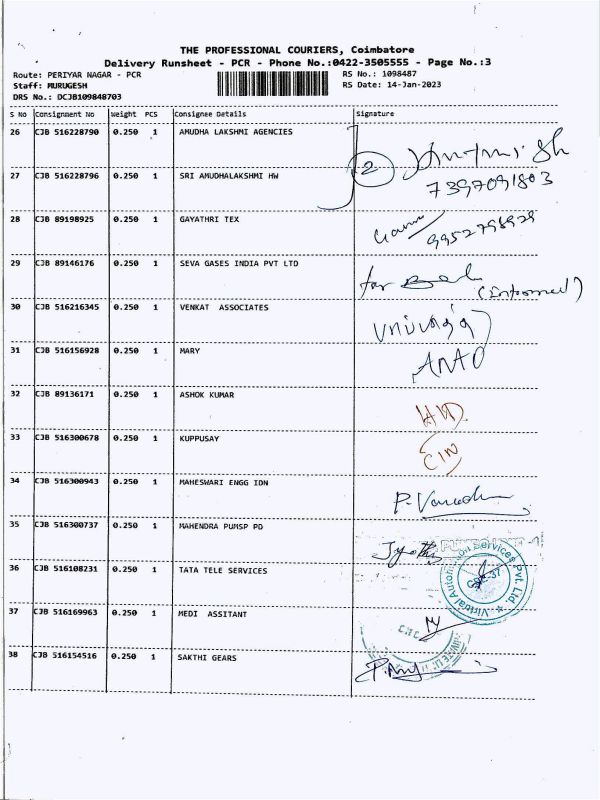 THE PROFESSIONAL COURIERS, Coimbatore
Delivery Runsheet - PCR - Phone No.:0422-3505555 - Page No.:3
Route: PERIYAR NAGAR - PCR RS No.: 1098487
Staff: MURUGESH RS Date: 14-Jan-2023
DRS No.: DCJB109848703
S No Consignment No Weight PCS Consignee Details Signature
26 CJB 516228790 0.250 1 AMUDHA LAKSHMI AGENCIES
2
27 CJB 516228796 0.250 1 SRI AMUDHALAKSHMI HW 7397091803
28 CJB 89198925 0.250 1 GAYATHRI TEX
9952798929
29 CJB 89146176 0.250 1 SEVA GASES INDIA PVT LTD
30 CJB 516216345 0.250 1 VENKAT ASSOCIATES
31 CJB 516156928 0.250 1 MARY ANTO
32 CJB 89136171 0.250 1 ASHOK KUMAR
33 CJB 516300678 0.250 1 KUPPUSAY
34 CJB 516300943 0.250 1 MAHESWARI ENGG IDN
35 CJB 516300737 0.250 1 MAHENDRA PUMSP PD
Jyothi
36 CJB 516108231 0.250 1 TATA TELE SERVICES
37 CJB 516169963 0.250 1 MEDI ASSITANT
38 CJB 516154516 0.250 1 SAKTHI GEARS